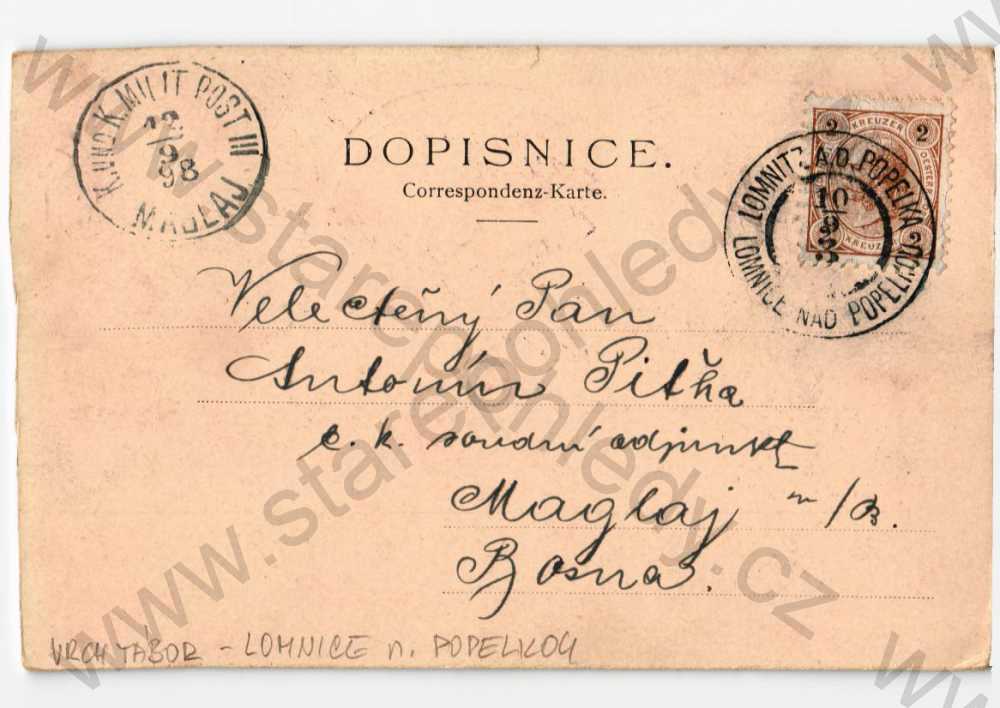 K. UND K. MILIT POST III
12/9 98
MAGLAJ
DOPISNICE.
Correspondenz-Karte.
2 KREUZER 2
LOMNITZ A.D. POPELKA
10 9
LOMNICE NAD POPELKOU
Velectěný Pan
Antonín Pitha
c. k. soudní adjunkt
Maglaj n/B.
Bosna.
VRCH TÁBOR - LOMNICE n. POPELKOU
www.starepohledy.cz